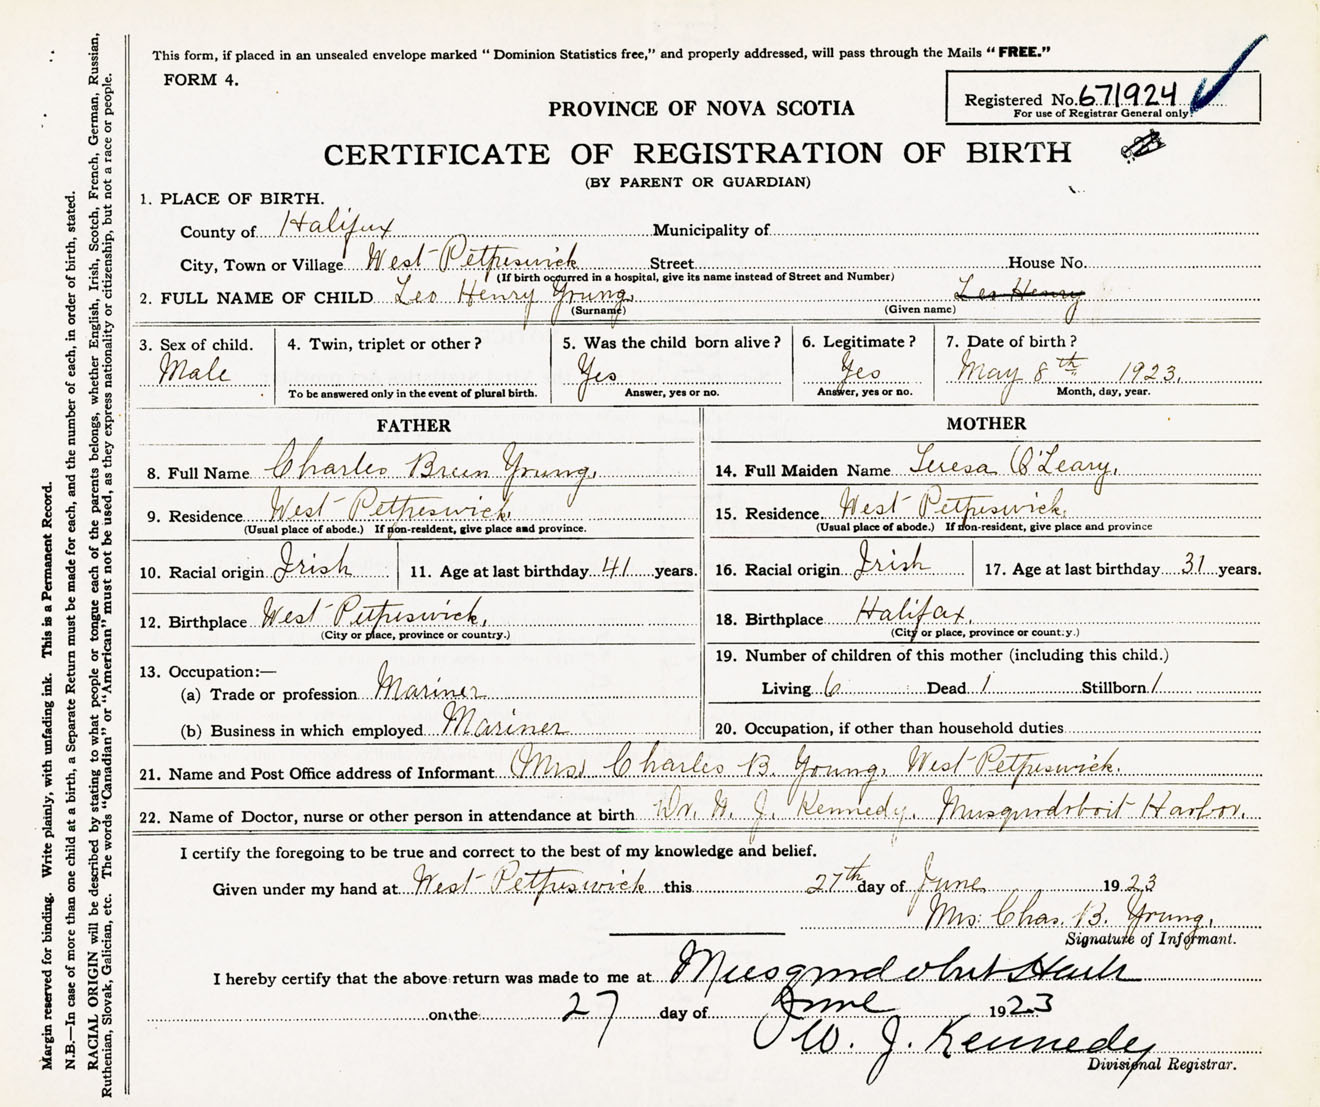 This form, if placed in an unsealed envelope marked "Dominion Statistics free," and properly addressed, will pass through the Mails "FREE."
FORM 4.
Registered No. 671924
For use of Registrar General only.
PROVINCE OF NOVA SCOTIA
CERTIFICATE OF REGISTRATION OF BIRTH
(BY PARENT OR GUARDIAN)
1. PLACE OF BIRTH.
County of Halifax Municipality of
City, Town or Village West Petpeswick Street House No.
(If birth occurred in a hospital, give its name instead of Street and Number)
2. FULL NAME OF CHILD Leo Henry Young Leo Henry
(Surname) (Given name)
3. Sex of child. 4. Twin, triplet or other? 5. Was the child born alive? 6. Legitimate? 7. Date of birth?
Male Yes Yes May 8th 1923.
To be answered only in the event of plural birth. Answer, yes or no. Answer, yes or no. Month, day, year.
FATHER MOTHER
8. Full Name Charles Breen Young. 14. Full Maiden Name Teresa O'Leary.
9. Residence West Petpeswick. 15. Residence West Petpeswick.
(Usual place of abode.) If non-resident, give place and province. (Usual place of abode.) If non-resident, give place and province
10. Racial origin Irish 11. Age at last birthday 41 years. 16. Racial origin Irish 17. Age at last birthday 31 years.
12. Birthplace West Petpeswick. 18. Birthplace Halifax.
(City or place, province or country.) (City or place, province or country.)
13. Occupation:— 19. Number of children of this mother (including this child.)
(a) Trade or profession Mariner Living 6 Dead 1 Stillborn /
(b) Business in which employed Mariner 20. Occupation, if other than household duties
21. Name and Post Office address of Informant Mrs. Charles B. Young, West Petpeswick.
22. Name of Doctor, nurse or other person in attendance at birth Dr. W. J. Kennedy. Musquodoboit Harbor.
I certify the foregoing to be true and correct to the best of my knowledge and belief.
Given under my hand at West Petpeswick this 27th day of June 1923
Mrs. Chas. B. Young.
Signature of Informant.
I hereby certify that the above return was made to me at Musquodoboit Harb
on the 27 day of June 1923
W. J. Kennedy
Divisional Registrar.
Margin reserved for binding. Write plainly, with unfading ink. This is a Permanent Record.
N.B.—In case of more than one child at a birth, a Separate Return must be made for each, and the number of each, in order of birth, stated.
RACIAL ORIGIN will be described by stating to what people or tongue each of the parents belongs, whether English, Irish, Scotch, French, German, Russian,
Ruthenian, Slovak, Galician, etc. The words "Canadian" or "American" must not be used, as they express nationality or citizenship, but not a race or people.